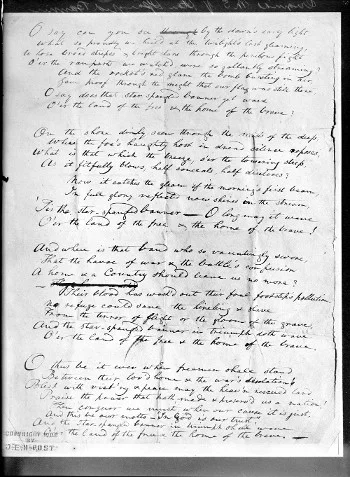 O say can you see through by the dawn's early light
What so proudly we hail'd at the twilight's last gleaming,
Whose broad stripes & bright stars through the perilous fight
O'er the ramparts we watch'd, were so gallantly streaming?
And the rocket's red glare, the bomb bursting in air,
Gave proof through the night that our flag was still there,
O say does that star-spangled banner yet wave
O'er the land of the free & the home of the brave?
On the shore dimly seen through the mists of the deep,
Where the foe's haughty host in dread silence reposes,
What is that which the breeze, o'er the towering steep,
As it fitfully blows, half conceals, half discloses?
Now it catches the gleam of the morning's first beam,
In full glory reflected now shines in the stream,
'Tis the star-spangled banner — O long may it wave
O'er the land of the free & the home of the brave!
And where is that band who so vauntingly swore,
That the havoc of war & the battle's confusion
A home & a Country should leave us no more?
Their blood has wash'd out their foul footstep's pollution
No refuge could save the hireling & slave
From the terror of flight or the gloom of the grave,
And the star-spangled banner in triumph doth wave
O'er the land of the free & the home of the brave.
O thus be it ever when freemen shall stand
Between their lov'd home & the war's desolation!
Blest with vict'ry & peace may the heav'n rescued land
Praise the power that hath made & preserv'd us a nation!
Then conquer we must, when our cause it is just,
And this be our motto — "In God is our trust,"
And the star-spangled banner in triumph shall wave
O'er the land of the free & the home of the brave. —
COPYRIGHT 1914
BY